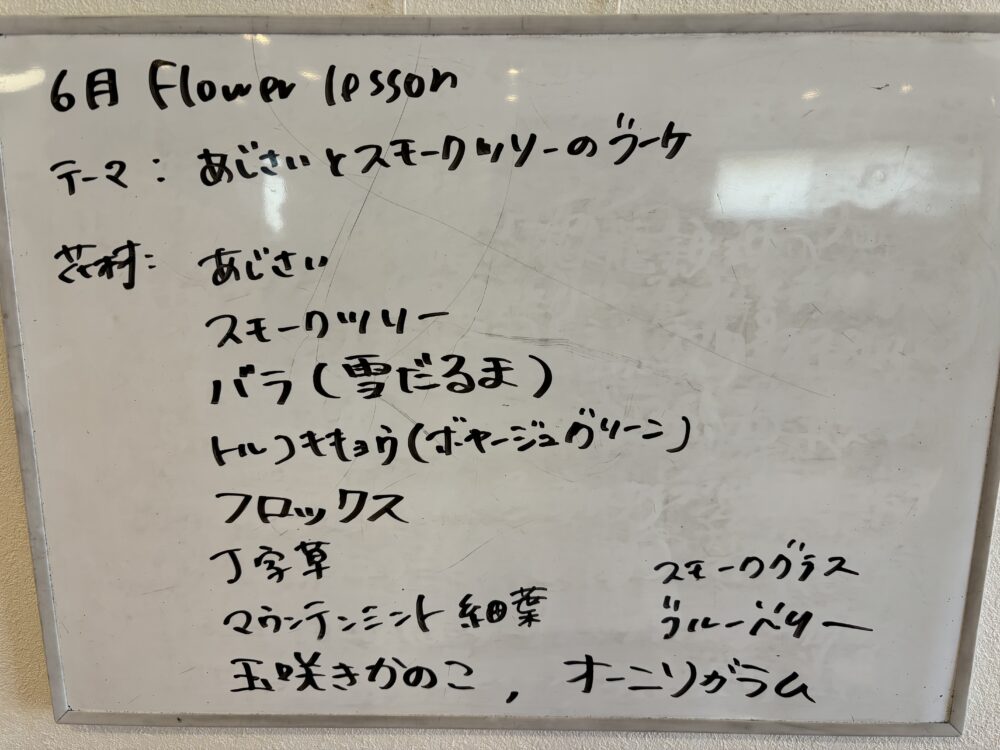 6月 Flower lesson
テーマ： あじさいとスモークツリーのブーケ
花材： あじさい
スモークツリー
バラ（雪だるま）
トルコキキョウ（ボヤージュグリーン）
フロックス
丁字草
スモークグラス
マウンテンミント細葉
ブルーベリー
玉咲きかのこ , オーニソガラム